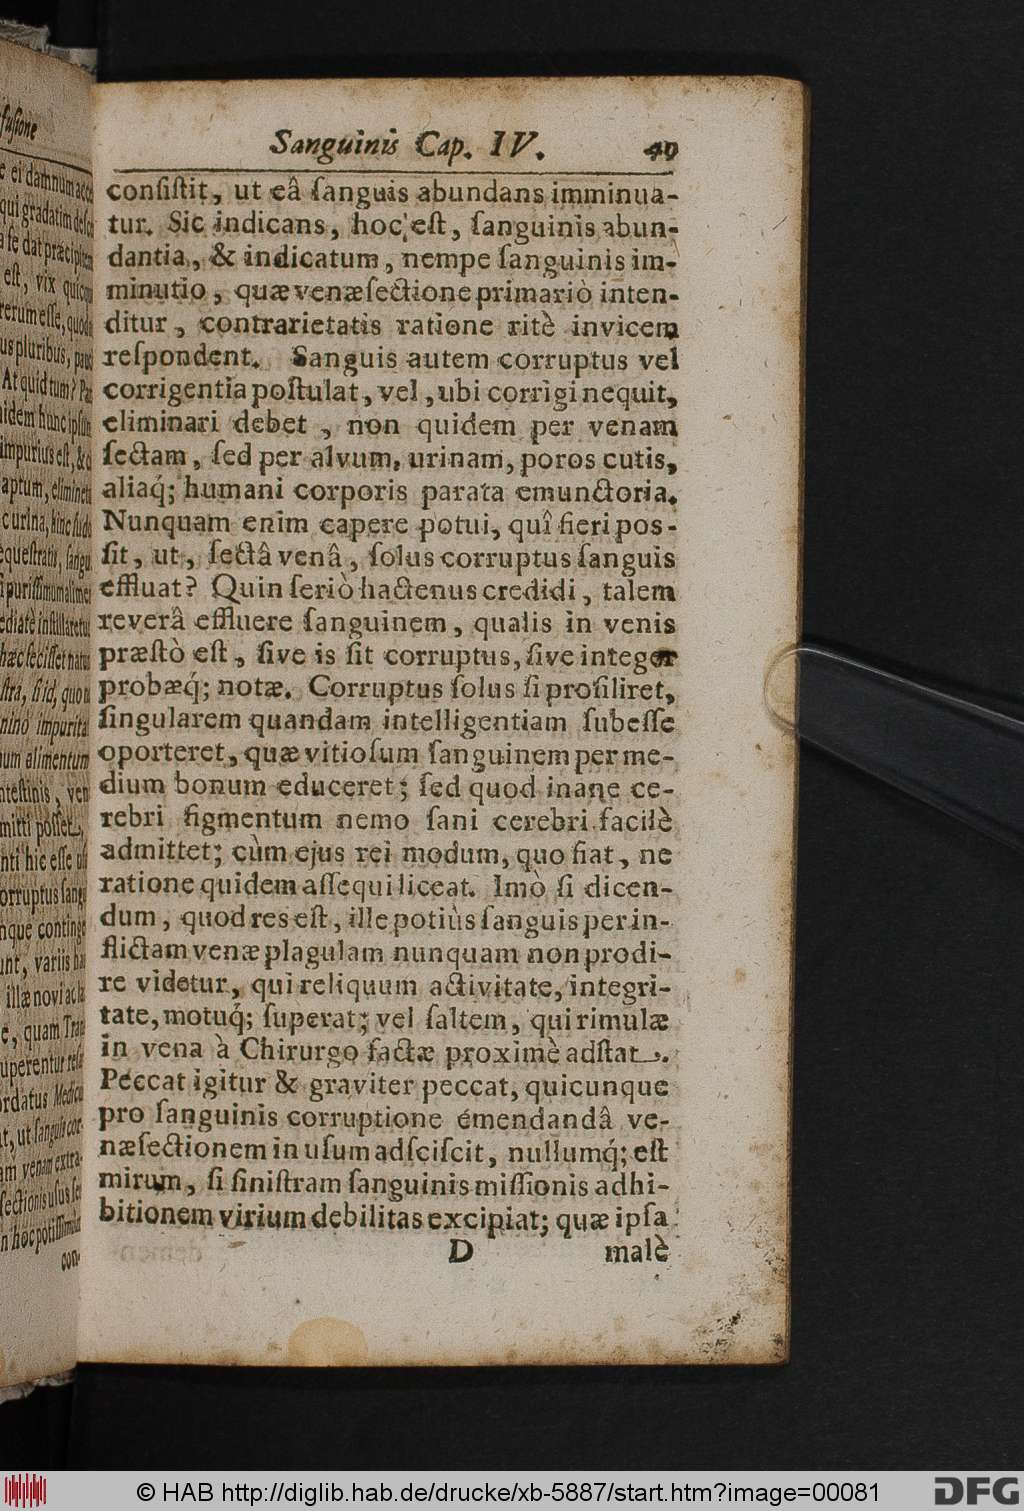 Sanguinis Cap. IV. 49
conſiſtit, ut eâ ſanguis abundans imminua-
tur. Sic indicans, hoc eſt, ſanguinis abun-
dantia, & indicatum, nempe ſanguinis im-
minutio, quæ venæſectione primariò inten-
ditur, contrarietatis ratione ritè invicem
reſpondent. Sanguis autem corruptus vel
corrigentia poſtulat, vel, ubi corrigi nequit,
eliminari debet, non quidem per venam
ſectam, ſed per alvum, urinam, poros cutis,
aliaq́; humani corporis parata emunctoria.
Nunquam enim capere potui, quî fieri pos-
ſit, ut, ſectâ venâ, ſolus corruptus ſanguis
effluat? Quin ſeriò hactenus credidi, talem
reverâ effluere ſanguinem, qualis in venis
præſtò eſt, ſive is ſit corruptus, ſive integer
probæq́; notæ. Corruptus ſolus ſi proſiliret,
ſingularem quandam intelligentiam ſubeſſe
oporteret, quæ vitioſum ſanguinem per me-
dium bonum educeret; ſed quod inane ce-
rebri figmentum nemo ſani cerebri facilè
admittet; cùm ejus rei modum, quo fiat, ne
ratione quidem aſſequi liceat. Imò ſi dicen-
dum, quod res eſt, ille potiùs ſanguis per in-
flictam venæ plagulam nunquam non prodi-
re videtur, qui reliquum activitate, integri-
tate, motuq́; ſuperat; vel ſaltem, qui rimulæ
in vena à Chirurgo factæ proximè adſtat.
Peccat igitur & graviter peccat, quicunque
pro ſanguinis corruptione emendandâ ve-
næſectionem in uſum adſciſcit, nullumq́; eſt
mirum, ſi ſiniſtram ſanguinis miſſionis adhi-
bitionem virium debilitas excipiat; quæ ipſa
D malè
© HAB http://diglib.hab.de/drucke/xb-5887/start.htm?image=00081
DFG